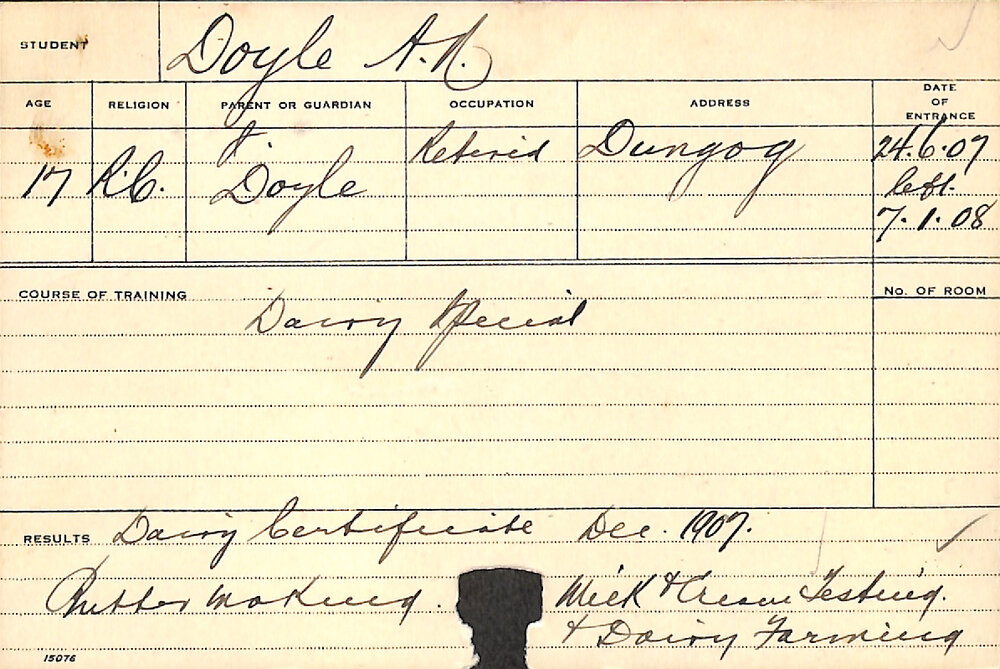 STUDENT Doyle A.R.
AGE RELIGION PARENT OR GUARDIAN OCCUPATION ADDRESS DATE OF ENTRANCE
17 R.C. J. Doyle Retired Dungog 24.6.07
left
7.1.08
COURSE OF TRAINING Dairy Special No. OF ROOM
RESULTS Dairy Certificate Dec. 1907.
Butter making. Milk & Cream Testing.
& Dairy Farming
15076